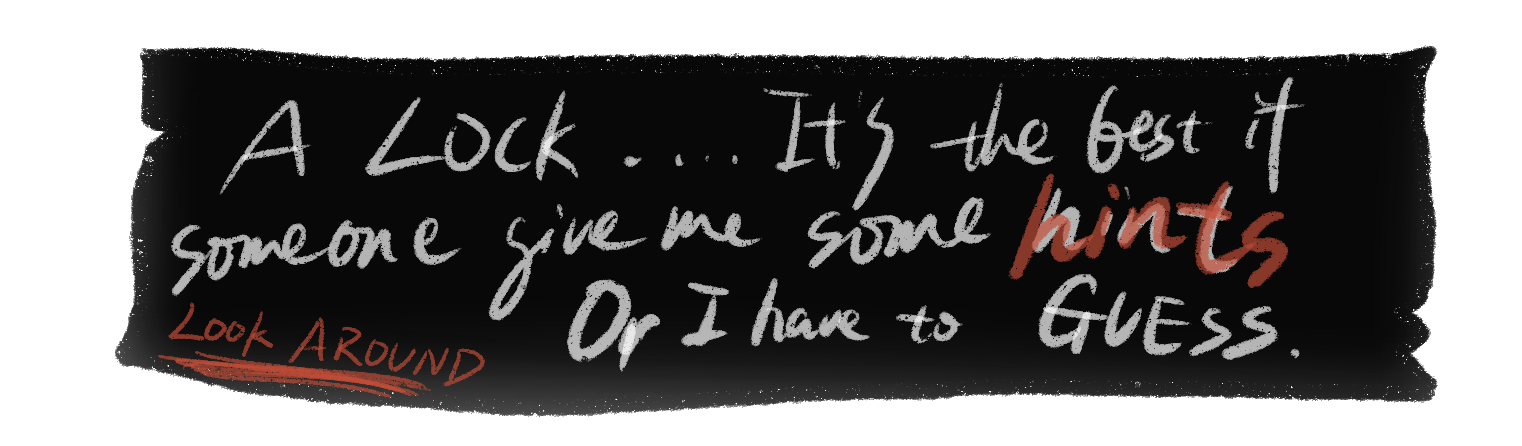 A LOCK .... It's the best if
someone give me some hints
Or I have to GUESS.
Look AROUND